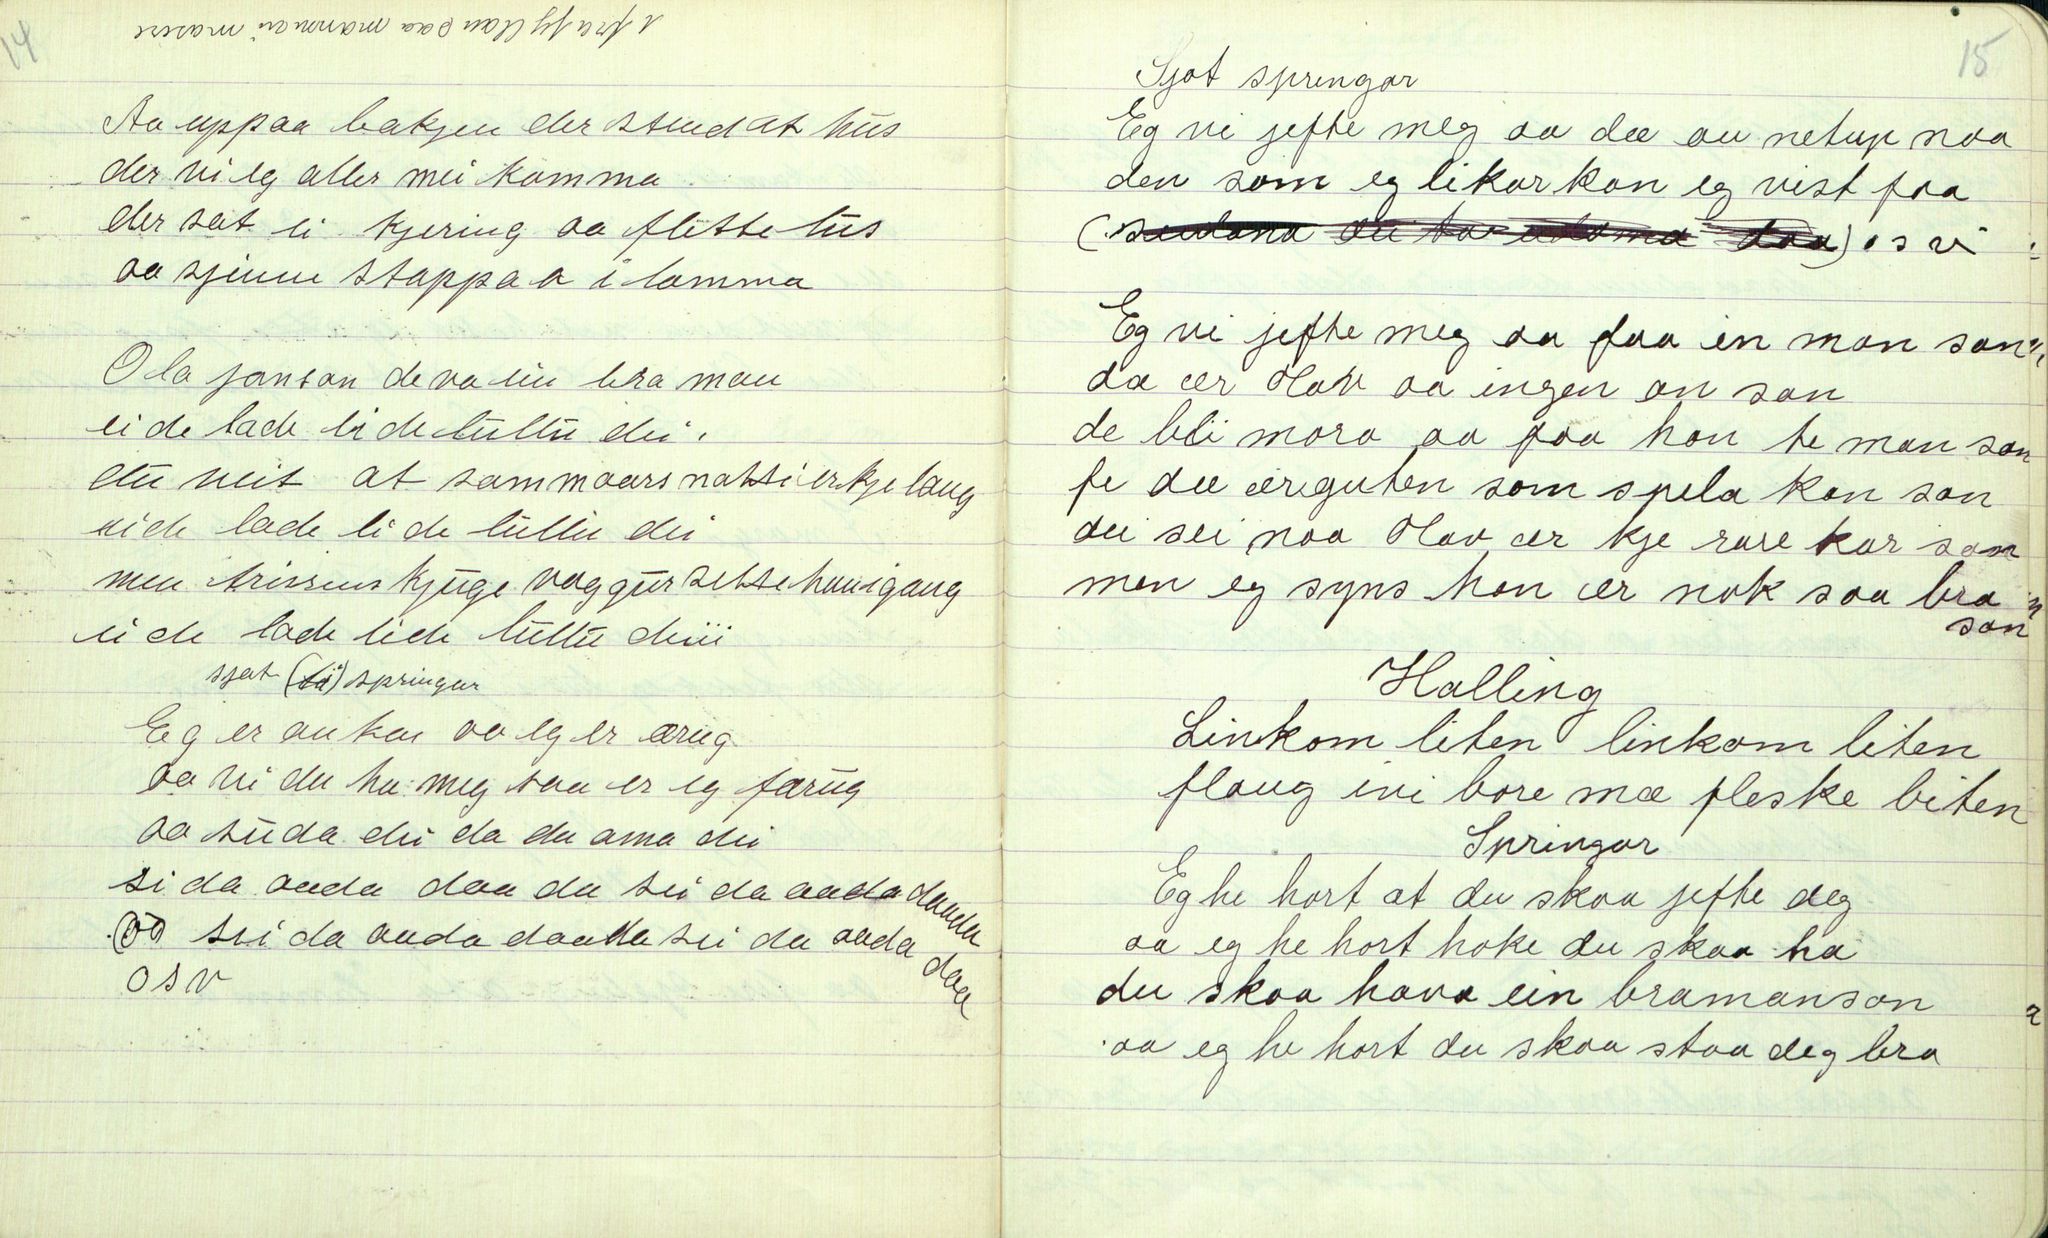 14
Aa uppaa bakjen der stend at hus
der vi eg aller mei komma
der sat ei kjering aa flette lus
aa sjinne stappaa i lomma
Ola janson de va ein bra man
ei de lade li de lullu dei.
du veit at sammaars natti er kje lang
ei de lade li de lullu dei
men kjuge vaggur sette han i gang
ei de lade li de lullu deiii
sjat springar
Eg er an kar aa eg er ærug
aa vi du ha meg saa er eg færug
aa suda dei da da ama dei
si da aada daa da sei da aada daada
sei da aada daada sei da aada daa
osv
15
Sjat springar
Eg vi jefte meg aa dæ au netup naa
den som eg likar kan eg vist faa
osv
Eg vi jefte meg aa faa en man san
dæ ær Olav aa ingen an san
de bli mora aa faa han te man san
fe dæ ær guten som spela kan san
dei sei naa Olav ær kje rare kar san
men eg syns han ær nok saa bra
san
Halling
Linkom liten linkom liten
flaug ivi bore mæ fleske biten
Springar
Eg he hort at du skaa jefte deg
aa eg he hort hoke du skaa ha
du skaa hava ein bra man san
aa eg he hort du skaa staa deg bra